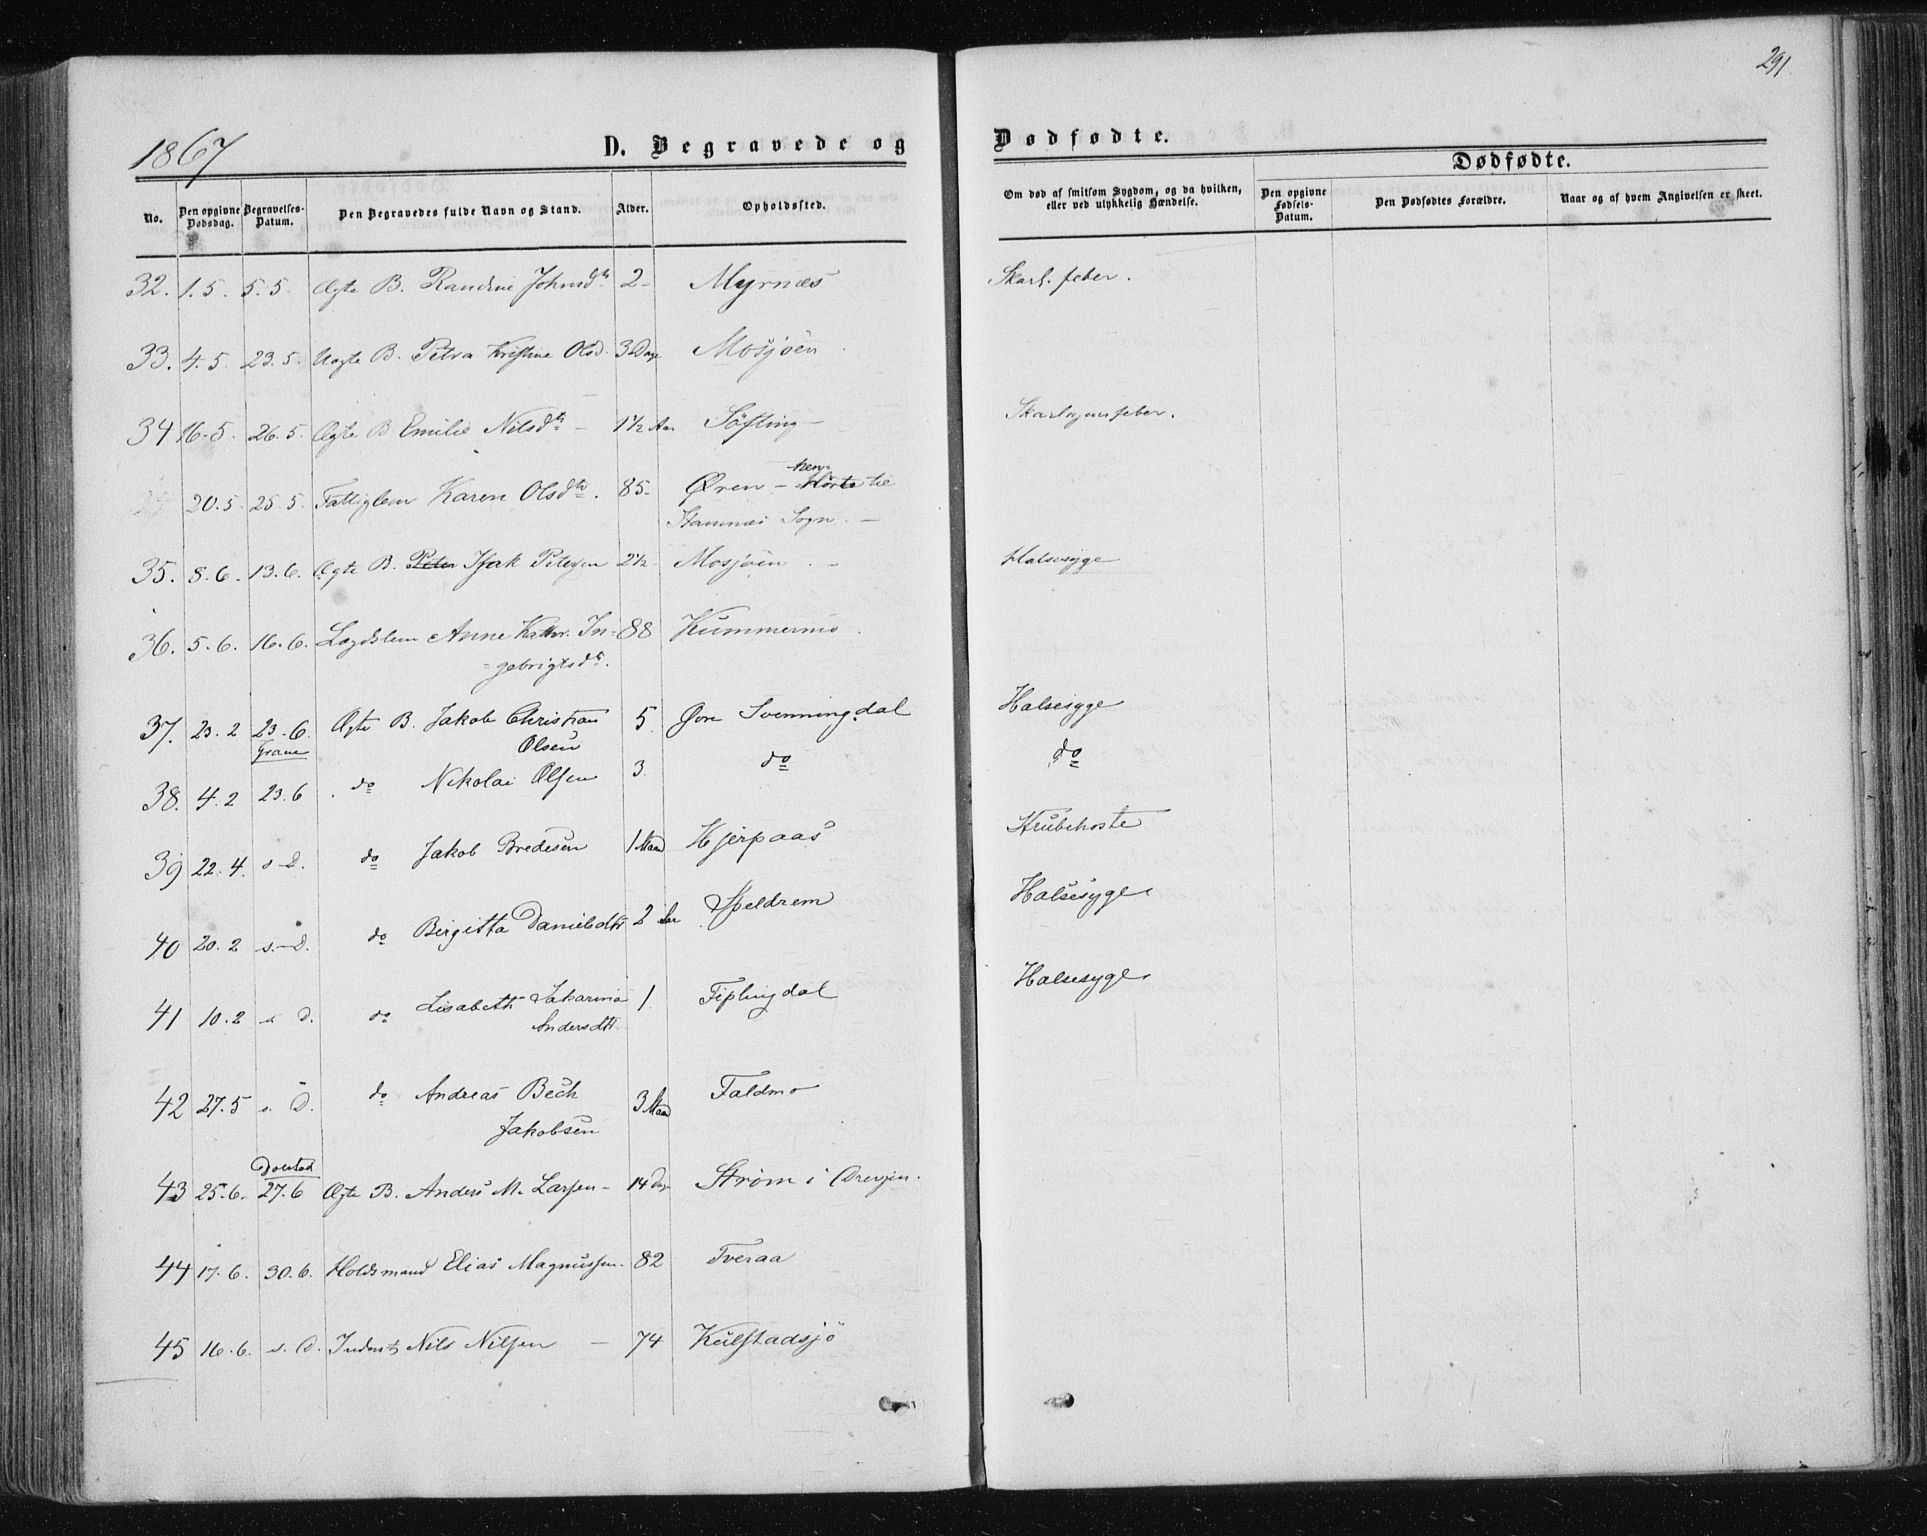 291.
1867
D. Begravede og
Dødfødte.
Dødfødte.
No.
Den opgivne Dødsdag.
Begravelses-Datum.
Den Begravedes fulde Navn og Stand.
Alder.
Opholdssted.
Om død af smitsom Sygdom, og da hvilken, eller ved ulykkelig Hændelse.
Den opgivne Fødsels-Datum.
Den Dødfødtes Forældre.
Naar og af hvem Angivelsen er skeet.
32. 1.5. 5.5. Ægte B. Randine Johnsdtr 2 - Myrnæs Skarl. feber.
33. 4.5. 23.5. Uægte B. Petra Kristine Olsd. 3 Dage Mosjøen
34 16.5. 26.5. Ægte B Emilie Nilsdtr - 1½ Aar Söfting - Skarlagensfeber.
20.5 25.5. Fattiglem Karen Olsdtr. 85. Øren - hen-hörte til
Stamnæs Sogn. -
35. 8.6. 13.6. Ægte B. Peter Isak Petersen 2½ Mosjöen. - Halsesyge
36. 5.6. 16.6. Lægdslem Anne Kathr. In- 88 Kummermo.
=gebrigtsdr.
37. 23.2 23.6. Ægte B. Jakob Christian 5. Øvre Svenningdal Halsesyge
Grane Olsen
38. 4.2 23.6. do Nikolai Olsen 3. do do
39 22.4. s. D. do Jakob Bredesen 1 Maan Hjerpaas Strubehoste
40 20.2 s.-D. do Birgitta Danielsdtr 2 Aar Speldrem Halsesyge
41 10.2 s. D. do Lisabeth Sakarina 1. Fiplingdal Halsesyge
Andersdtr.
42 27.5 s. D. do Andreas Bech 3 Maan Faldmo
Jakobsen
Dolstad
43 25.6. 27.6 Ægte B. Anders M. Larsen - 14 Dage Strøm i Drevjen.
44 17.6. 30.6. Holdsmand Elias Magnussen. 82 Tveraa
45 16.6. s. D. Inderst Nils Nilsen - 74 Kulstadsjö